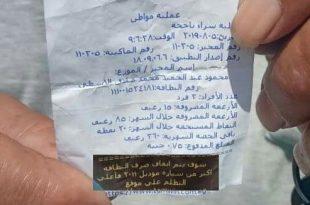 عملية مواطن
عملية شراء ناجحة
التاريخ:٢٠١٩-٠٨-٠٥ الوقت:٩:٦:٢٨
رقم المخبز: ١١٠٢٠٥ رقم الماكينة: ١١٠٢٠٥
رقم إصدار التطبيق: ١٨.٠٩.٠٦
إسم المخبز / الموزع:
محمود عبد الحميد محمد
رقم البطاقة:
عدد الأفراد: ٣ فرد
الأرغفة المصروفة: ١٥ رغيف
الأرغفة المصروفة خلال الشهر: ٨٥ رغيف
النقاط المستحقة خلال الشهر: ٢٠ نقطة
باقي الحصة الشهرية: ٣٦٠ رغيف
المبلغ المدفوع: ٠.٧٥ جنيه
سوف يتم ايقاف صرف البطاقة
أكثر من سيارة موديل ٢٠١١ فأعلى
التظلم على موقع